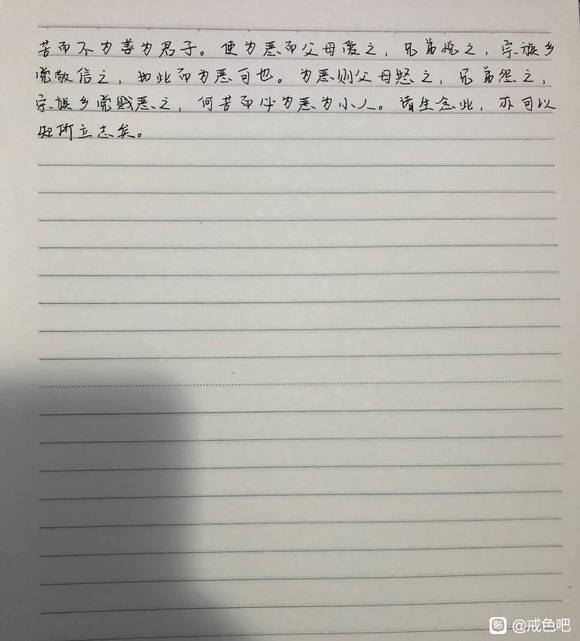 苦而不为善为君子。使为恶而父母爱之，兄弟悦之，宗族乡
党敬信之，如此而为恶可也。为恶则父母怒之，兄弟怨之，
宗族乡党贱恶之，何苦而必为恶为小人。诸生念此，亦可以
知所立志矣。
贴 @戒色吧